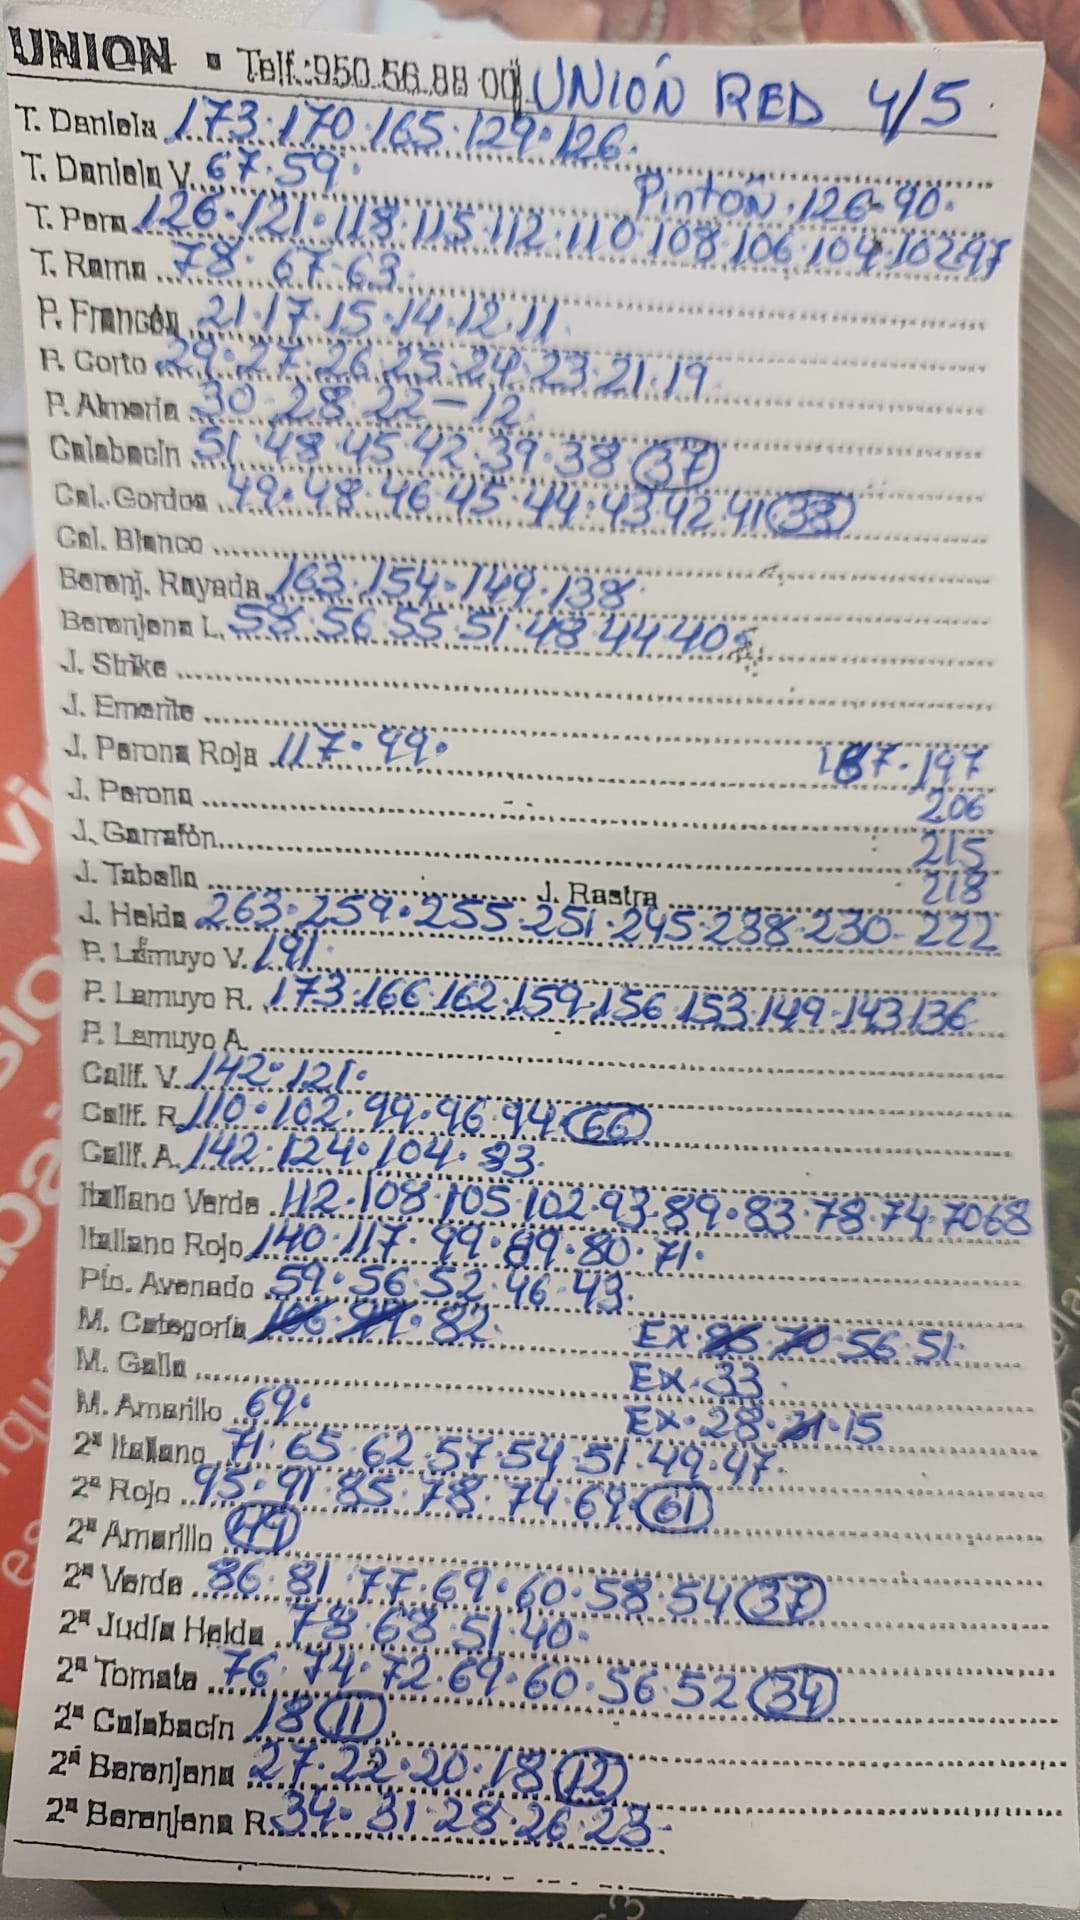 UNION ▪ Telf.:950.56.88 00 UNIÓN RED 4/5.
T. Daniela 173·170·165·129·126.
T. Daniela V. 67·59· Pintón·126-90.
T. Pera 126·121·118·115·112·110·108·106·104·102·97
T. Rama 78·67-63
P. Francés 21·17·15·14·12·11.
P. Corto 29·27·26·25·24·23·21·19
P. Almería 30·28·22-12.
Calabacín 51·48·45·42·39·38 (37)
Cal. Gordos 49·48·46·45·44·43·42·41 (38)
Cal. Blanco
Berenj. Rayada 163·154·149·138
Berenjena L. 58·56·55·51·48·44·40
J. Strike
J. Emerite
J. Perona Roja 117·99· 187-197
J. Perona 206
J. Garrafón 215
J. Tabella J. Rastra 218
J. Helda 263·259·255·251·245·238·230-222
P. Lamuyo V. 191
P. Lamuyo R. 173·166·162·159·156·153·149·143·136
P. Lamuyo A.
Calif. V. 142·121·
Calif. R. 110·102·99·96·94 (66)
Calif. A. 142·124·104·83
Italiano Verde 112·108·105·102·93·89·83·78·74·70 68
Italiano Rojo 140·117·99·89·80·71·
Pto. Avenado 59·56·52·46·43.
M. Categoría 82. EX 56·51.
M. Galia EX·33
M. Amarillo 69· EX·28· 15
2ª Italiano 71·65·62·57·54·51·49·47·
2ª Rojo 95·91·85·78·74·69 (61)
2ª Amarillo (49)
2ª Verde 86·81·77·69·60·58·54 (37)
2ª Judía Helda 78·68·51·40·
2ª Tomate 76·74·72·69·60·56·52 (34)
2ª Calabacín 18 (11)
2ª Berenjena 27·22·20·18 (12)
2ª Berenjena R. 34·31·28·26·23-